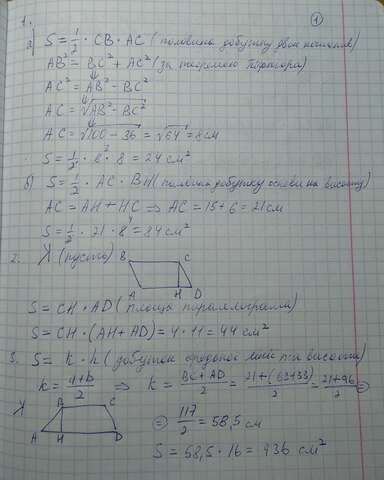 1.
①
а) S = 1/2 · CB · AC (половина добутку двох катетів)
AB² = BC² + AC² (за теоремою Піфагора)
AC² = AB² - BC²
AC = √AB² - BC²
AC = √100 - 36 = √64 = 8 см
S = 1/2 · 6 · 8 = 24 см²
б) S = 1/2 · AC · BH (половина добутку основи на висоту)
AC = AH + HC ⇒ AC = 15 + 6 = 21 см
S = 1/2 · 21 · 8 = 84 см²
2. (пусто)
B C
A H D
S = CH · AD (площа паралелограма)
S = CH · (AH + AD) = 4 · 11 = 44 см²
3. S = k · h (добуток середньої лінії та висоти)
k = a+b/2 ⇒ k = BC + AD/2 = 21 + (63+33)/2 = 21+96/2 =
B C
A H D
= 117/2 = 58,5 см
S = 58,5 · 16 = 936 см²